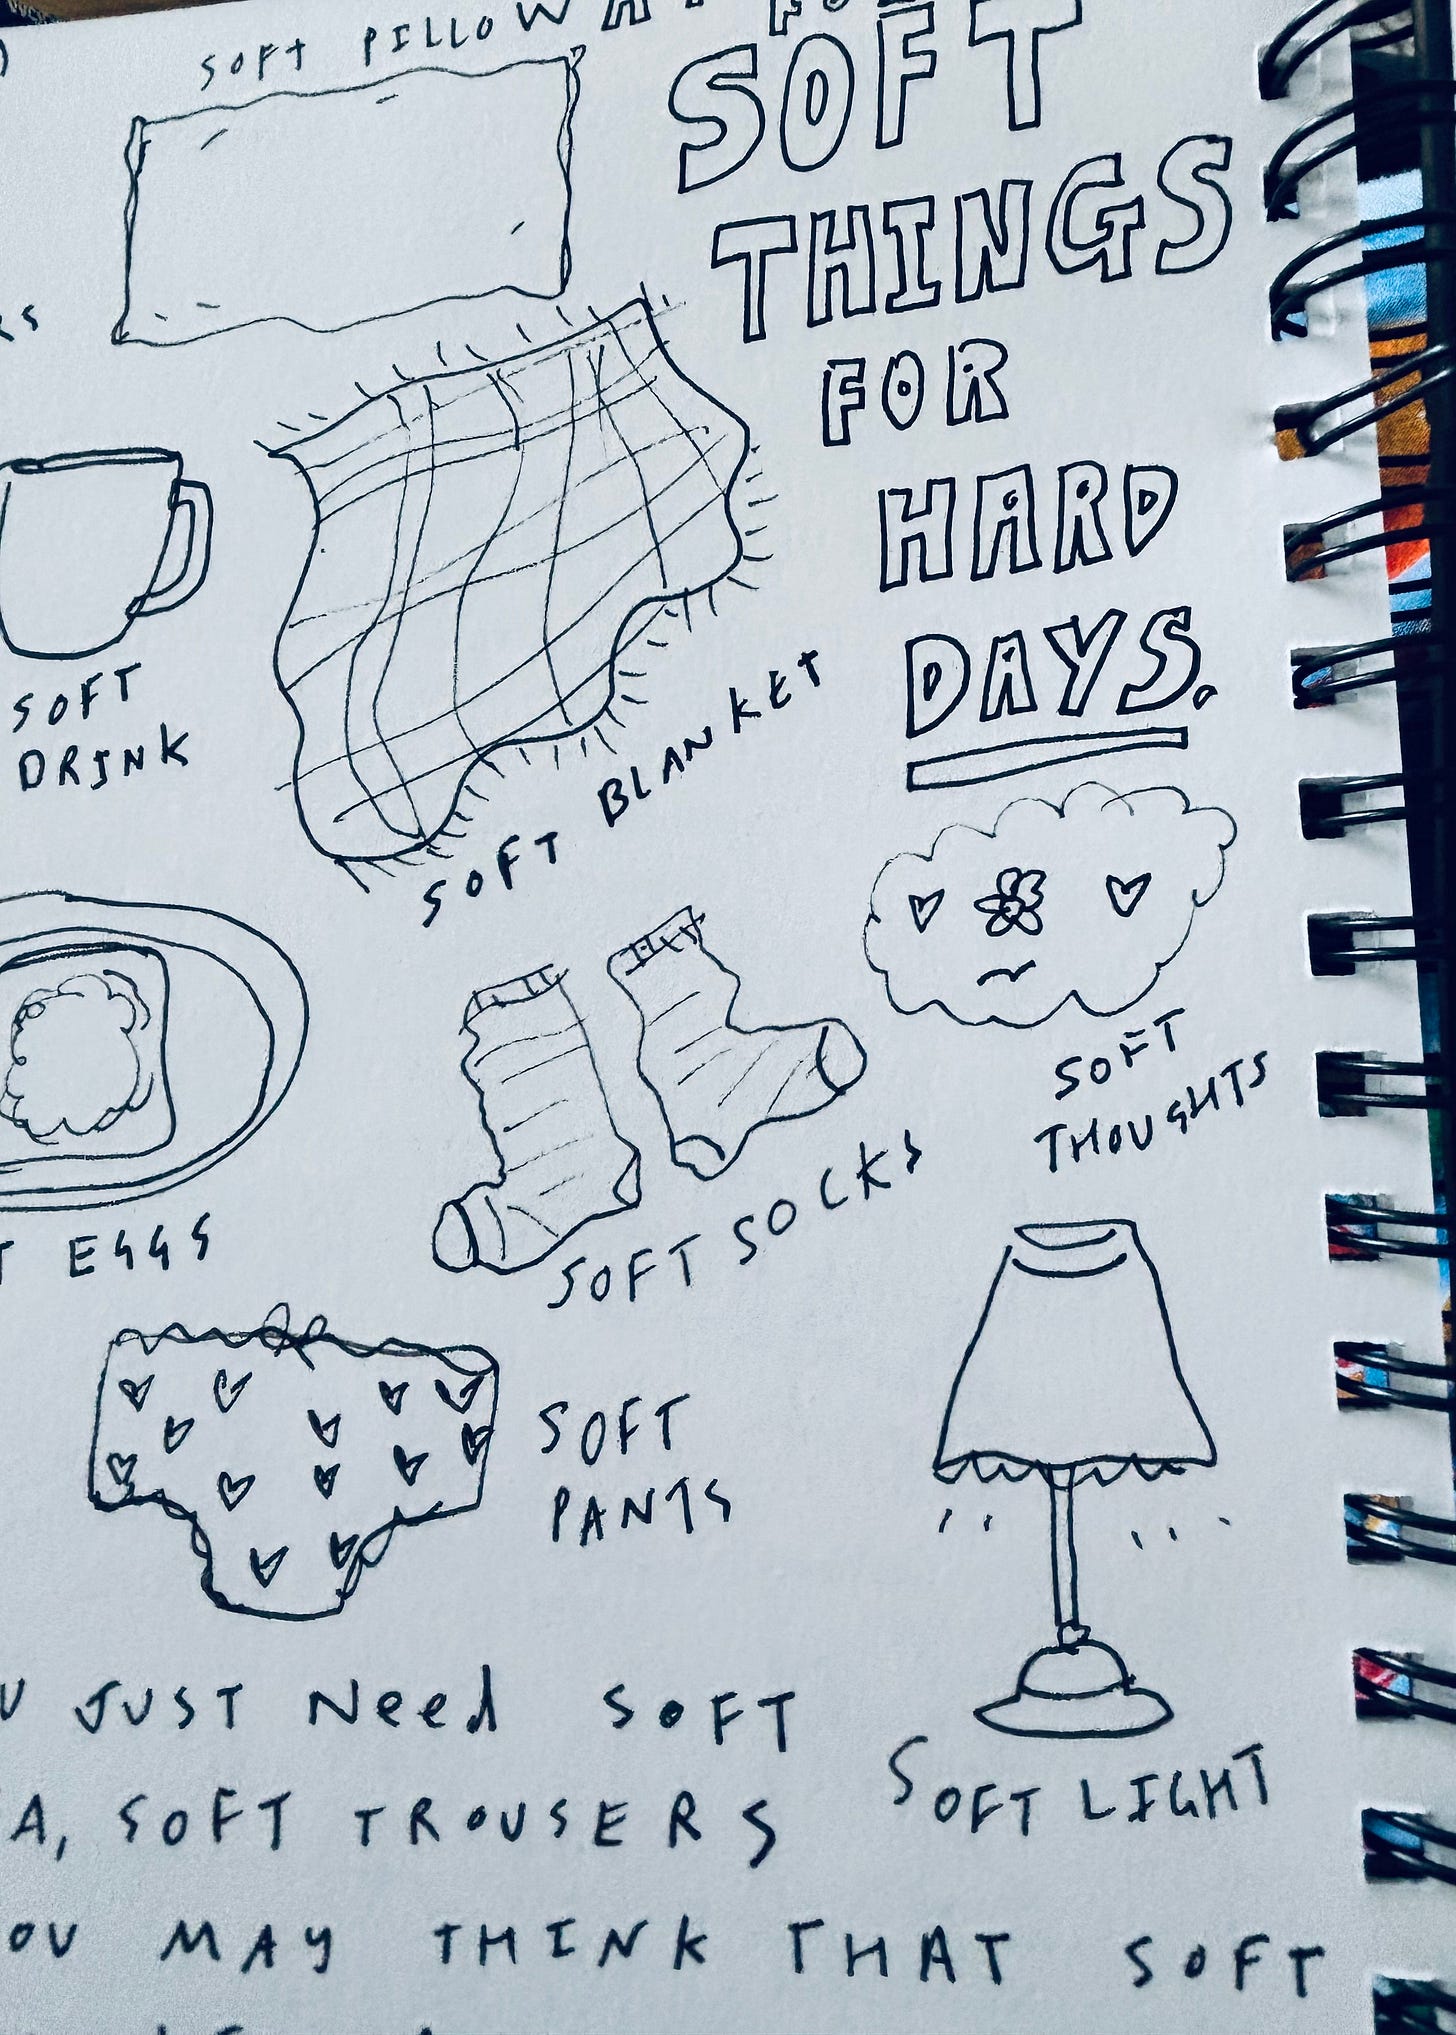 SOFT PILLOW
SOFT
THINGS
FOR
HARD
DAYS.
SOFT
DRINK
SOFT BLANKET
SOFT
THOUGHTS
SOFT SOCKS
EGGS
SOFT
PANTS
SOFT LIGHT
JUST Need SOFT
A, SOFT TROUSERS
OU MAY THINK THAT SOFT